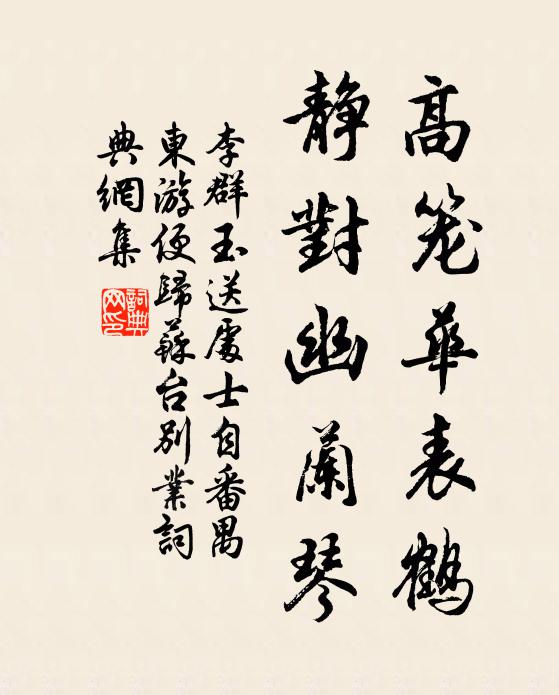 高笼華表鶴
靜對幽蘭琴
李群玉送處士自番禺
東游便歸蘇台別業詞
典網集
詞典网印